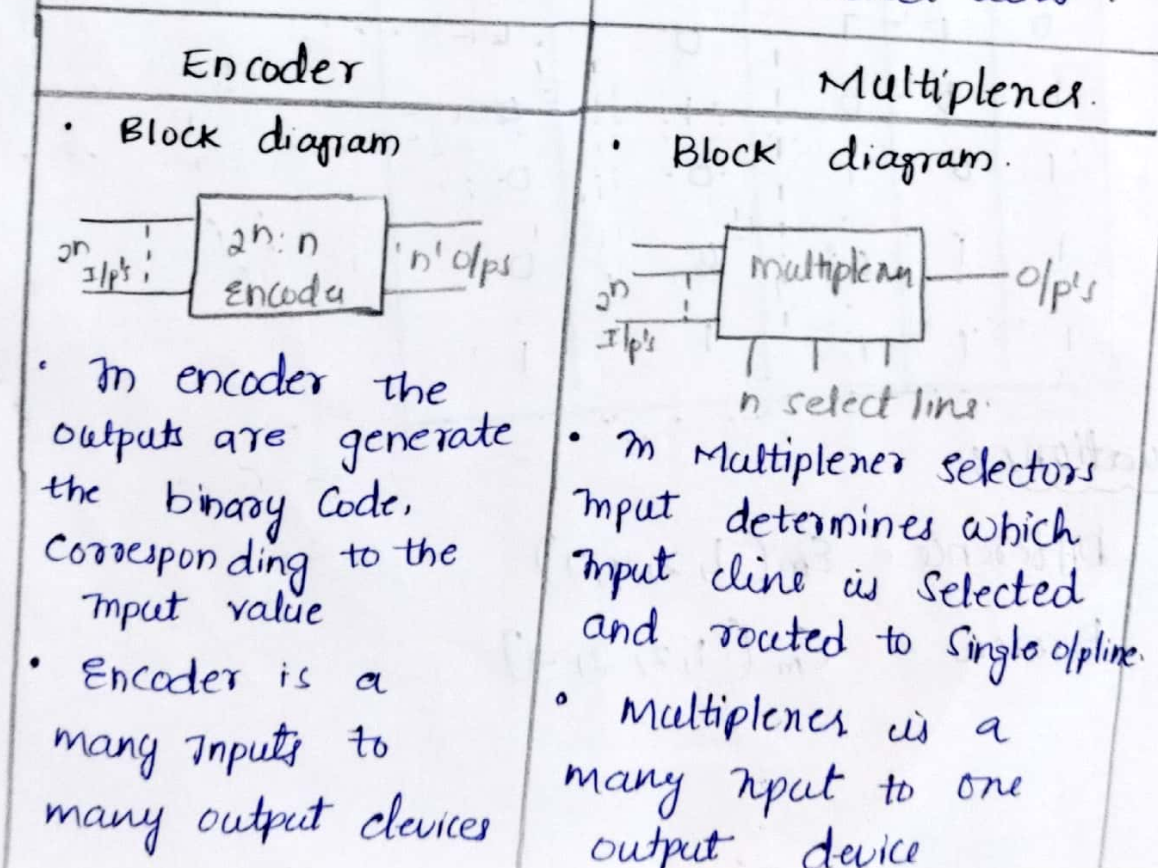 Encoder
• Block diagram
2n
I/p's
2n: n
Encoder
'n' o/ps
• In encoder the
outputs are generate
the binary Code,
Corresponding to the
Input value
• Encoder is a
many Inputs to
many output devices
Multiplexer.
• Block diagram.
2n
I/p's
multiplexer
o/p's
n select line
• In Multiplexer selectors
Input determines which
Input line is Selected
and routed to Single o/pline.
• Multiplexer is a
many nput to one
output device